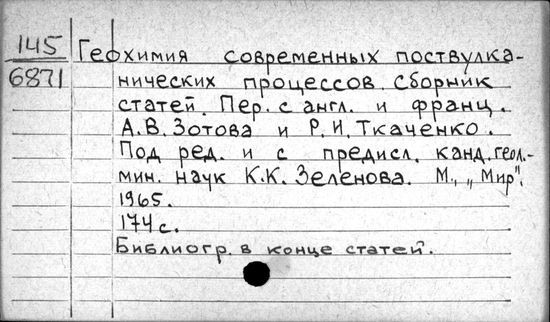 145
6871
Геохимия современных поствулка-
нических процессов. Сборник
статей. Пер. с англ. и франц.
А.В. Зотова и Р.И. Ткаченко.
Под ред. и с предисл. канд. геол.-
мин. наук К.К. Зеленова. М., „Мир".
1965.
174 с.
Библиогр. в конце статей.